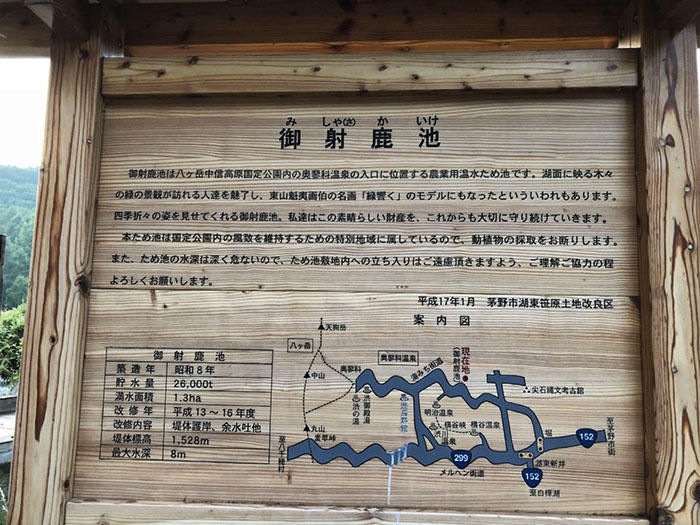 みしゃ(さ)かいけ
御射鹿池
御射鹿池は八ヶ岳中信高原国定公園内の奥蓼科温泉の入口に位置する農業用温水ため池です。湖面に映る木々
の緑の景観が訪れる人達を魅了し、東山魁夷画伯の名画「緑響く」のモデルにもなったといういわれもあります。
四季折々の姿を見せてくれる御射鹿池。私達はこの素晴らしい財産を、これからも大切に守り続けていきます。
本ため池は国定公園内の風致を維持するための特別地域に属しているので、動植物の採取をお断りします。
また、ため池の水深は深く危ないので、ため池敷地内への立ち入りはご遠慮頂きますよう、ご理解ご協力の程
よろしくお願いします。
平成17年1月 茅野市湖東笹原土地改良区
案内図
御射鹿池
築造年 昭和8年
貯水量 26,000t
満水面積 1.3ha
改修年 平成13〜16年度
改修内容 堤体護岸、余水吐他
堤体標高 1,528m
最大水深 8m
天狗岳
八ヶ岳
中山
丸山
麦草峠
奥蓼科
奥蓼科温泉
渋御殿湯
渋の湯
湯みち街道
現在地
(御射鹿池)
明治温泉
横谷峡
横谷温泉
渋川温泉
尖石縄文考古館
堀
湖東新井
メルヘン街道
299
152
152
至茅野市街
至白樺湖